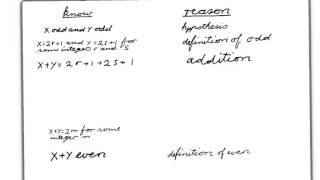 know reason
X odd and Y odd hypothesis
X=2r+1 and Y=2s+1 for definition of odd
some integers r and s
X+Y=2r+1+2s+1 addition
X+Y=2m for some
integer m
X+Y even definition of even